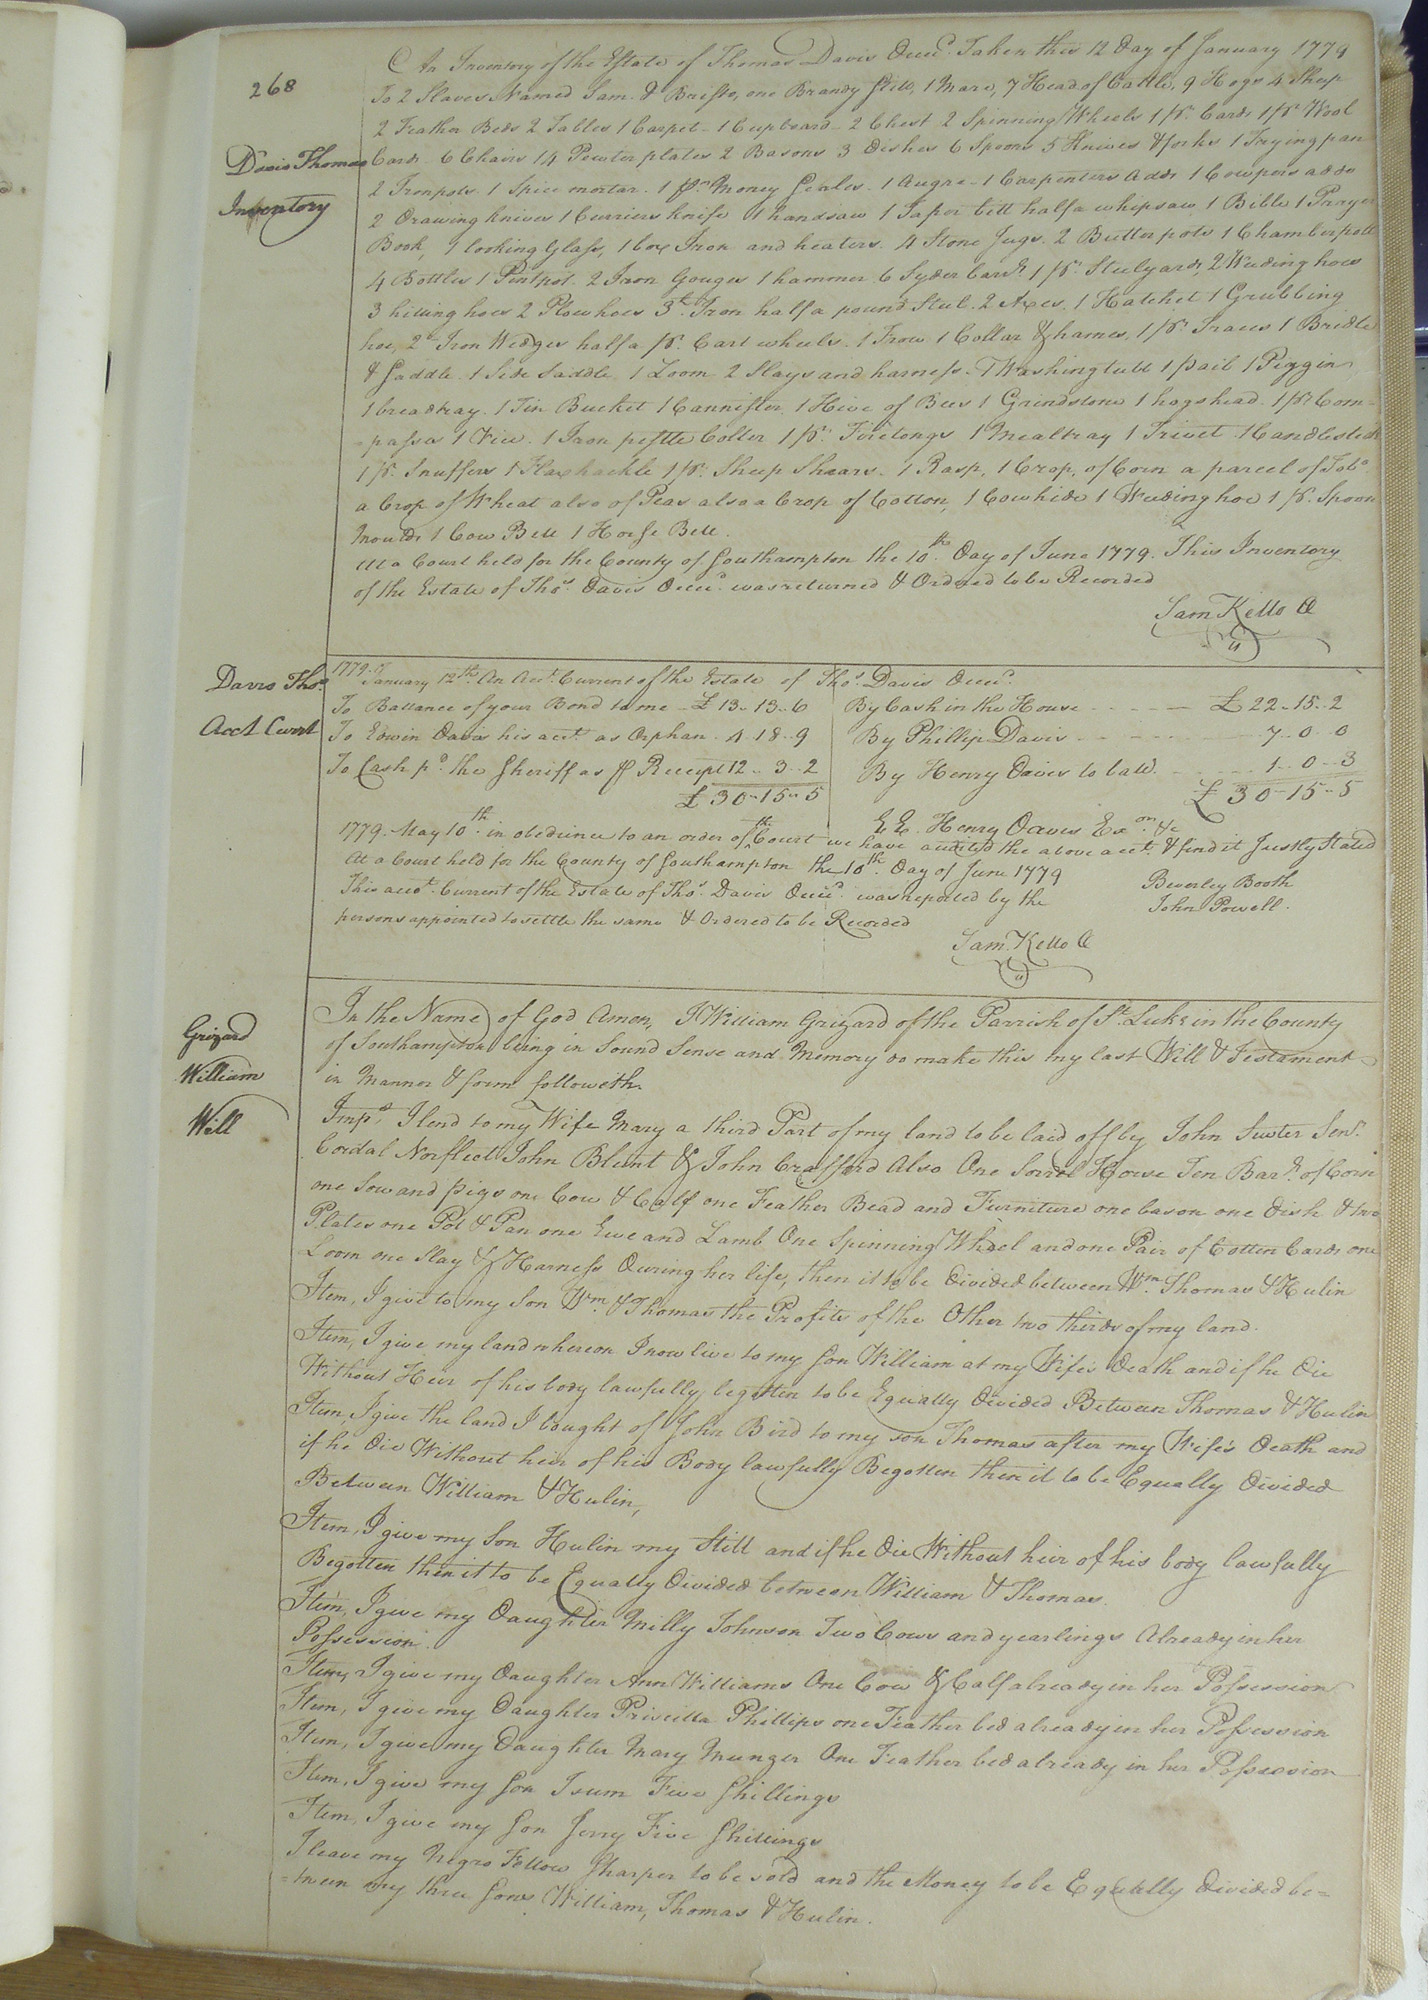 268
An Inventory of the Estate of Thomas Davis Decd. Taken this 12 Day of January 1779
To 2 Slaves Named Sam & Bristo, one Brandy Still, 1 Mare, 7 Head of Cattle, 9 Hogs 4 Sheep
2 Feather Beds 2 Tables 1 Carpet 1 Cupboard 2 Chest 2 Spinning Wheels 1 pr. Cards 1 pr. Wool
Davis Thomas
Cards 6 Chairs 14 Pewter plates 2 Basons 3 Dishes 6 Spoons 5 Knives & forks 1 Frying pan
2 Ironpots. 1 Spice mortar. 1 pr. Money Scales. 1 Augre 1 Carpenters adds 1 Cowpers adds
Inventory
2 Drawing knives 1 Curriers knife 1 handsaw 1 Tapor bitt half a whipsaw 1 Bible 1 Prayer
Book, 1 looking Glass, 1 box Iron and heaters. 4 Stone Jugs. 2 Butter pots 1 Chamber pott
4 Bottles 1 Pintpot. 2 Iron Gouges 1 hammer 6 Syder Cask 1 pr. Stulyards, 2 Weeding hoes
3 hilling hoes 2 Plow hoes 3 lb. Iron half a pound Steel. 2 Axes. 1 Hatchet 1 Grubbing
hoe, 2 Iron Wedges half a pr. Cart wheels. 1 Frow 1 Collar & hames, 1 pr. Traces 1 Bridle
& Saddle. 1 Side Saddle 1 Loom 2 Slays and harness. 1 Washing tubb 1 pail 1 Piggin
1 breadtray. 1 Tin Bucket 1 Cannister, 1 Hive of Bees 1 Grindstone 1 hogshead. 1 pr. Com=
passes 1 Vice. 1 Iron pestle Colter 1 pr. Firetongs 1 Mealtray 1 Trivet 1 Candlestick
1 pr. Snuffers 1 Flaxhackle 1 pr. Sheep Shears. 1 Rasp, 1 Crop, of Corn a parcel of Tobo.
a Crop of Wheat also of Peas also a Crop of Cotton, 1 Cowhide 1 Weeding hoe 1 pr. Spoon
Moulds 1 Cow Bell 1 Horse Bell.
At a Court held for the County of Southampton the 10th. Day of June 1779. This Inventory
of the Estate of Thos. Davis Decd. was returned & Ordered to be Recorded
Sam Kello Cl
Davis Thos.
Acct Currt
1779.
January 12th. An Acct. Current of the Estate of Thos. Davis Decd.
To Ballance of your Bond to me £ 13..13..6
By Cash in the House £ 22..15..2
To Edwin Davis his acct. as Orphan. 4..18..9
By Phillip Davis 7..0..0
To Cash pd. the Sheriff as ⅌ Receipt 12..3..2
By Henry Davis to ball. 1..0..3
£ 30..15..5
£ 30..15..5
E E. Henry Davis Exor. &c
1779. May 10th. in obedience to an order of the Court we have audited the above acct. & find it Justly Stated
At a Court held for the County of Southampton the 10th. Day of June 1779
Beverley Booth
This acct. Current of the Estate of Thos. Davis Decd. was reported by the
John Powell.
persons appointed to settle the same & Ordered to be Recorded
Sam. Kello Cl
Grizard
William
Will
In the Name of God Amen, I William Grizard of the Parrish of St. Luke in the County
of Southampton being in Sound Sense and Memory do make this my last Will & Testament
in Mannor & form followeth.
Imps. I lend to my Wife Mary a third Part of my land to be laid off by John Suter Senr.
Cordal Norfleet John Blunt & John Crafford Also One Sorrel Horse Ten Barls. of Corn
one Sow and pigs one Cow & Calf one Feather Bead and Furniture one bason one Dish & two
Plates one Pot & Pan one Ewe and Lamb One Spinning Wheel and one Pair of Cotten Cards one
Loom one Slay & Harness During her life, then it to be Divided between Wm. Thomas & Hulin
Item, I give to my Son Wm. & Thomas the Profits of the Other two thirds of my land.
Item, I give my land whereon I now live to my Son William at my Wife's Death and if he Die
Without Heir of his body lawfully begotten to be Equally Divided Between Thomas & Hulin
Item, I give the land I bought of John Bird to my son Thomas after my Wife's Death and
if he Die Without heir of his Body lawfully Begotten then it to be Equally Divided
Between William & Hulin,
Item, I give my Son Hulin my Still and if he Die Without heir of his body lawfully
Begotten then it to be Equally Divided between William & Thomas.
Item, I give my Daughter Milly Johnson Two Cows and yearlings Already in her
Possession.
Item, I give my Daughter Ann Williams One Cow & Calf already in her Possession
Item, I give my Daughter Priscilla Phillips one Feather bed already in her Possession
Item, I give my Daughter Mary Munger One Feather bed already in her Possession
Item, I give my Son Isum Five Shillings
Item, I give my Son Jerry Five Shillings
I leave my Negro Fellow Sharper to be sold and the Money to be Equally Divided be=
=tween my three Sons William, Thomas & Hulin.